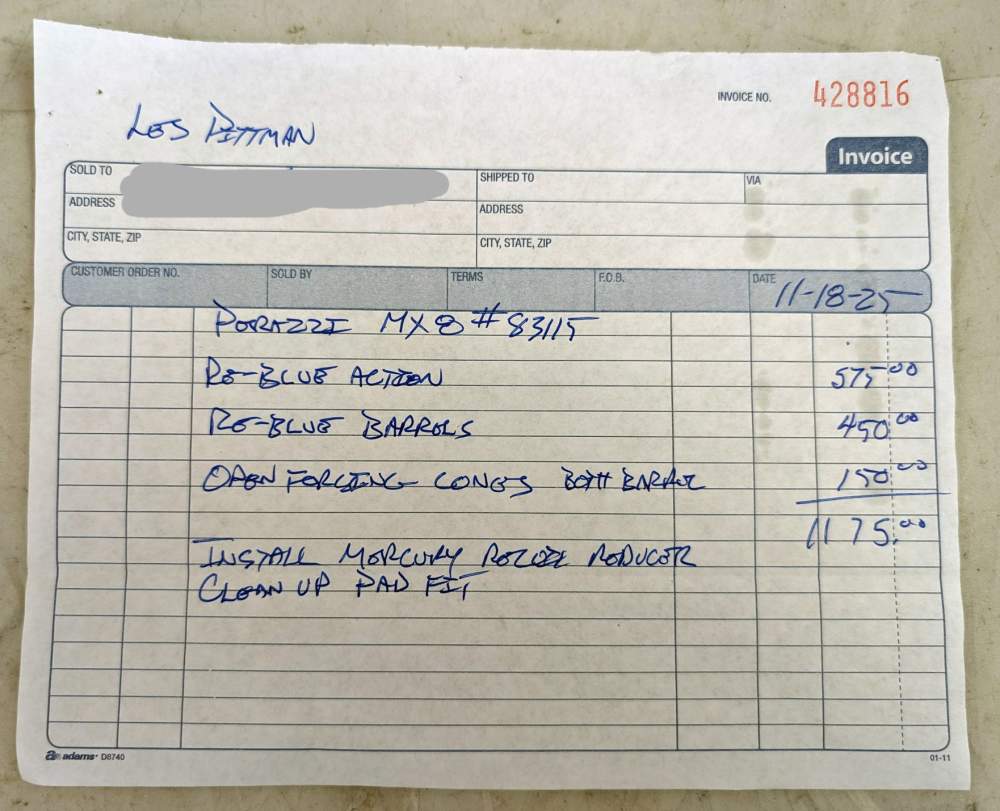 INVOICE NO. 428816
LES PITTMAN
Invoice
SOLD TO
SHIPPED TO
VIA
ADDRESS
ADDRESS
CITY, STATE, ZIP
CITY, STATE, ZIP
CUSTOMER ORDER NO. SOLD BY TERMS F.O.B. DATE 11-18-25
PERAZZI MX8 # 83115
RE-BLUE ACTION 575.00
RE-BLUE BARRELS 450.00
OPEN FORCING CONES BOTH BARREL 150.00
1175.00
INSTALL MERCURY RECOIL REDUCER
CLEAN UP PAD FIT
adams D8740
01-11